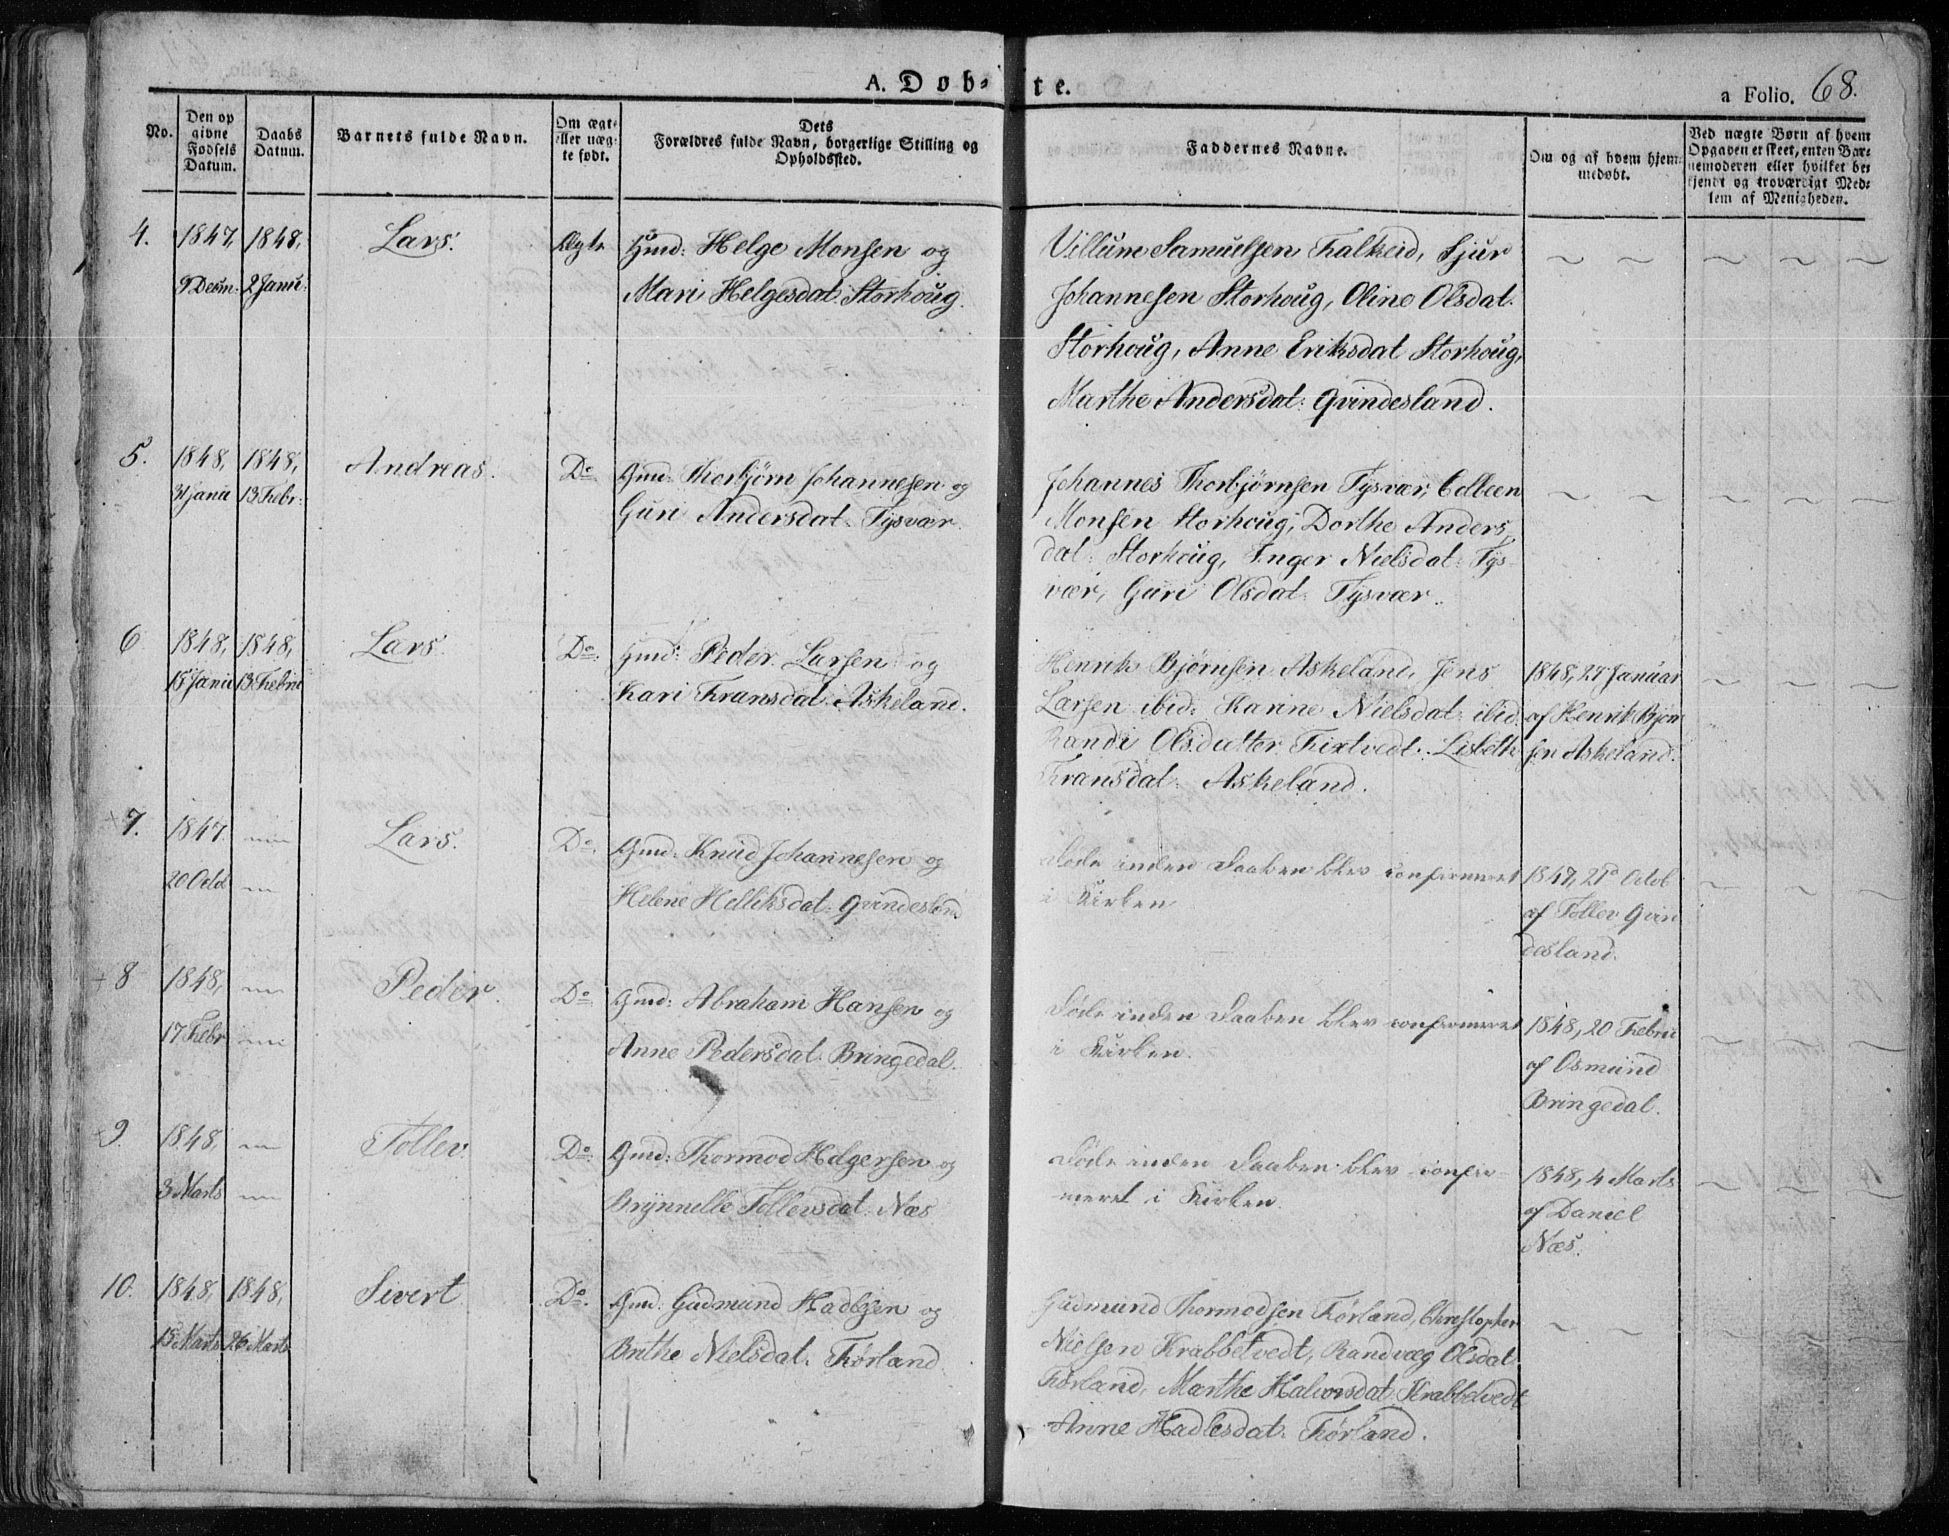 A. Døb- te.
a Folio. 68.
No.
Den op
givne
Fødsels
Datum.
Daabs
Datum.
Barnets fulde Navn.
Om ægte
eller uæg-
te født.
Dets
Forældres fulde Navn, borgerlige Stilling og
Opholdssted.
Faddernes Navne.
Om og af hvem hjem-
medøbt.
Ved uægte Børn af hvem
Opgaven er skeet, enten Bar-
nemoderen eller hvilket be-
kjendt og troværdigt Med-
lem af Menigheden.
4. 1847, 1848, Lars. Ægte Gmd: Helge Monsen og
9 Decm: 2 Janu: Mari Helgesdat: Storhoug.
Villum Samuelsen Falkeid, Sjur
Johannesen Storhoug, Oline Olsdat.
Storhoug, Anne Eriksdat Storhoug,
Marthe Andersdat: Qvindesland.
5. 1848, 1848, Andreas. Do Gmd: Thorbjørn Johannesen og
31 Janu 13 Febr. Guri Andersdat: Tysvær.
Johannes Thorbjørnsen Tysvær, Edbeen
Monsen Storhoug, Dorthe Anders,
dat: Storhoug, Inger Nielsdat: Tys-
vær, Guri Olsdat: Tysvær.
6 1848, 1848, Lars. Do. Gmd: Peder Larsen og
15 Janu 13 Febru Kari Fransdat: Askeland.
Henrik Bjørnsen Askeland, Jens
Larsen ibid: Karine Nielsdat: ibid.
Randi Olsdatter Fixtvedt. Lisbeth
Fransdat: Askeland.
1848, 27 Januar
af Henrik Bjørn
sen Askeland.
+7. 1847. Lars. Do. Gmd: Knud Johannesen og
20 Octol Helene Helliksdat: Qvindesland
Døde inden Daaben blev confirmeret
i Kirken
1847, 21d Octob
af Tollev Qvin
desland.
+8 1848, Peder. Do. Gmd: Abraham Hansen og
17 Febr Anne Pedersdat: Bringedal.
Døde inden Daaben blev confirmeret
i Kirken.
1848, 20 Febru
af Osmund
Bringedal.
+9. 1848, Tollev Do. Gmd: Thormod Helgersen og
3 Marts Brynnelle Tollevsdat: Næs
Døde inden Daaben blev confir-
meret i Kirken.
1848, 4 Marts
af Daniel
Næs.
10. 1848, 1848, Sivert Do. Gmd: Gudmund Hadlesen og
15 Marts 26 Marts Brithe Nielsdat. Førland.
Gudmund Thormodsen Førland, Christopher
Nielsen Krabbetvedt, Randvæg Olsdat.
Førland, Marthe Halvorsdat: Krabbetvedt
Anne Hadlesdat: Førland.